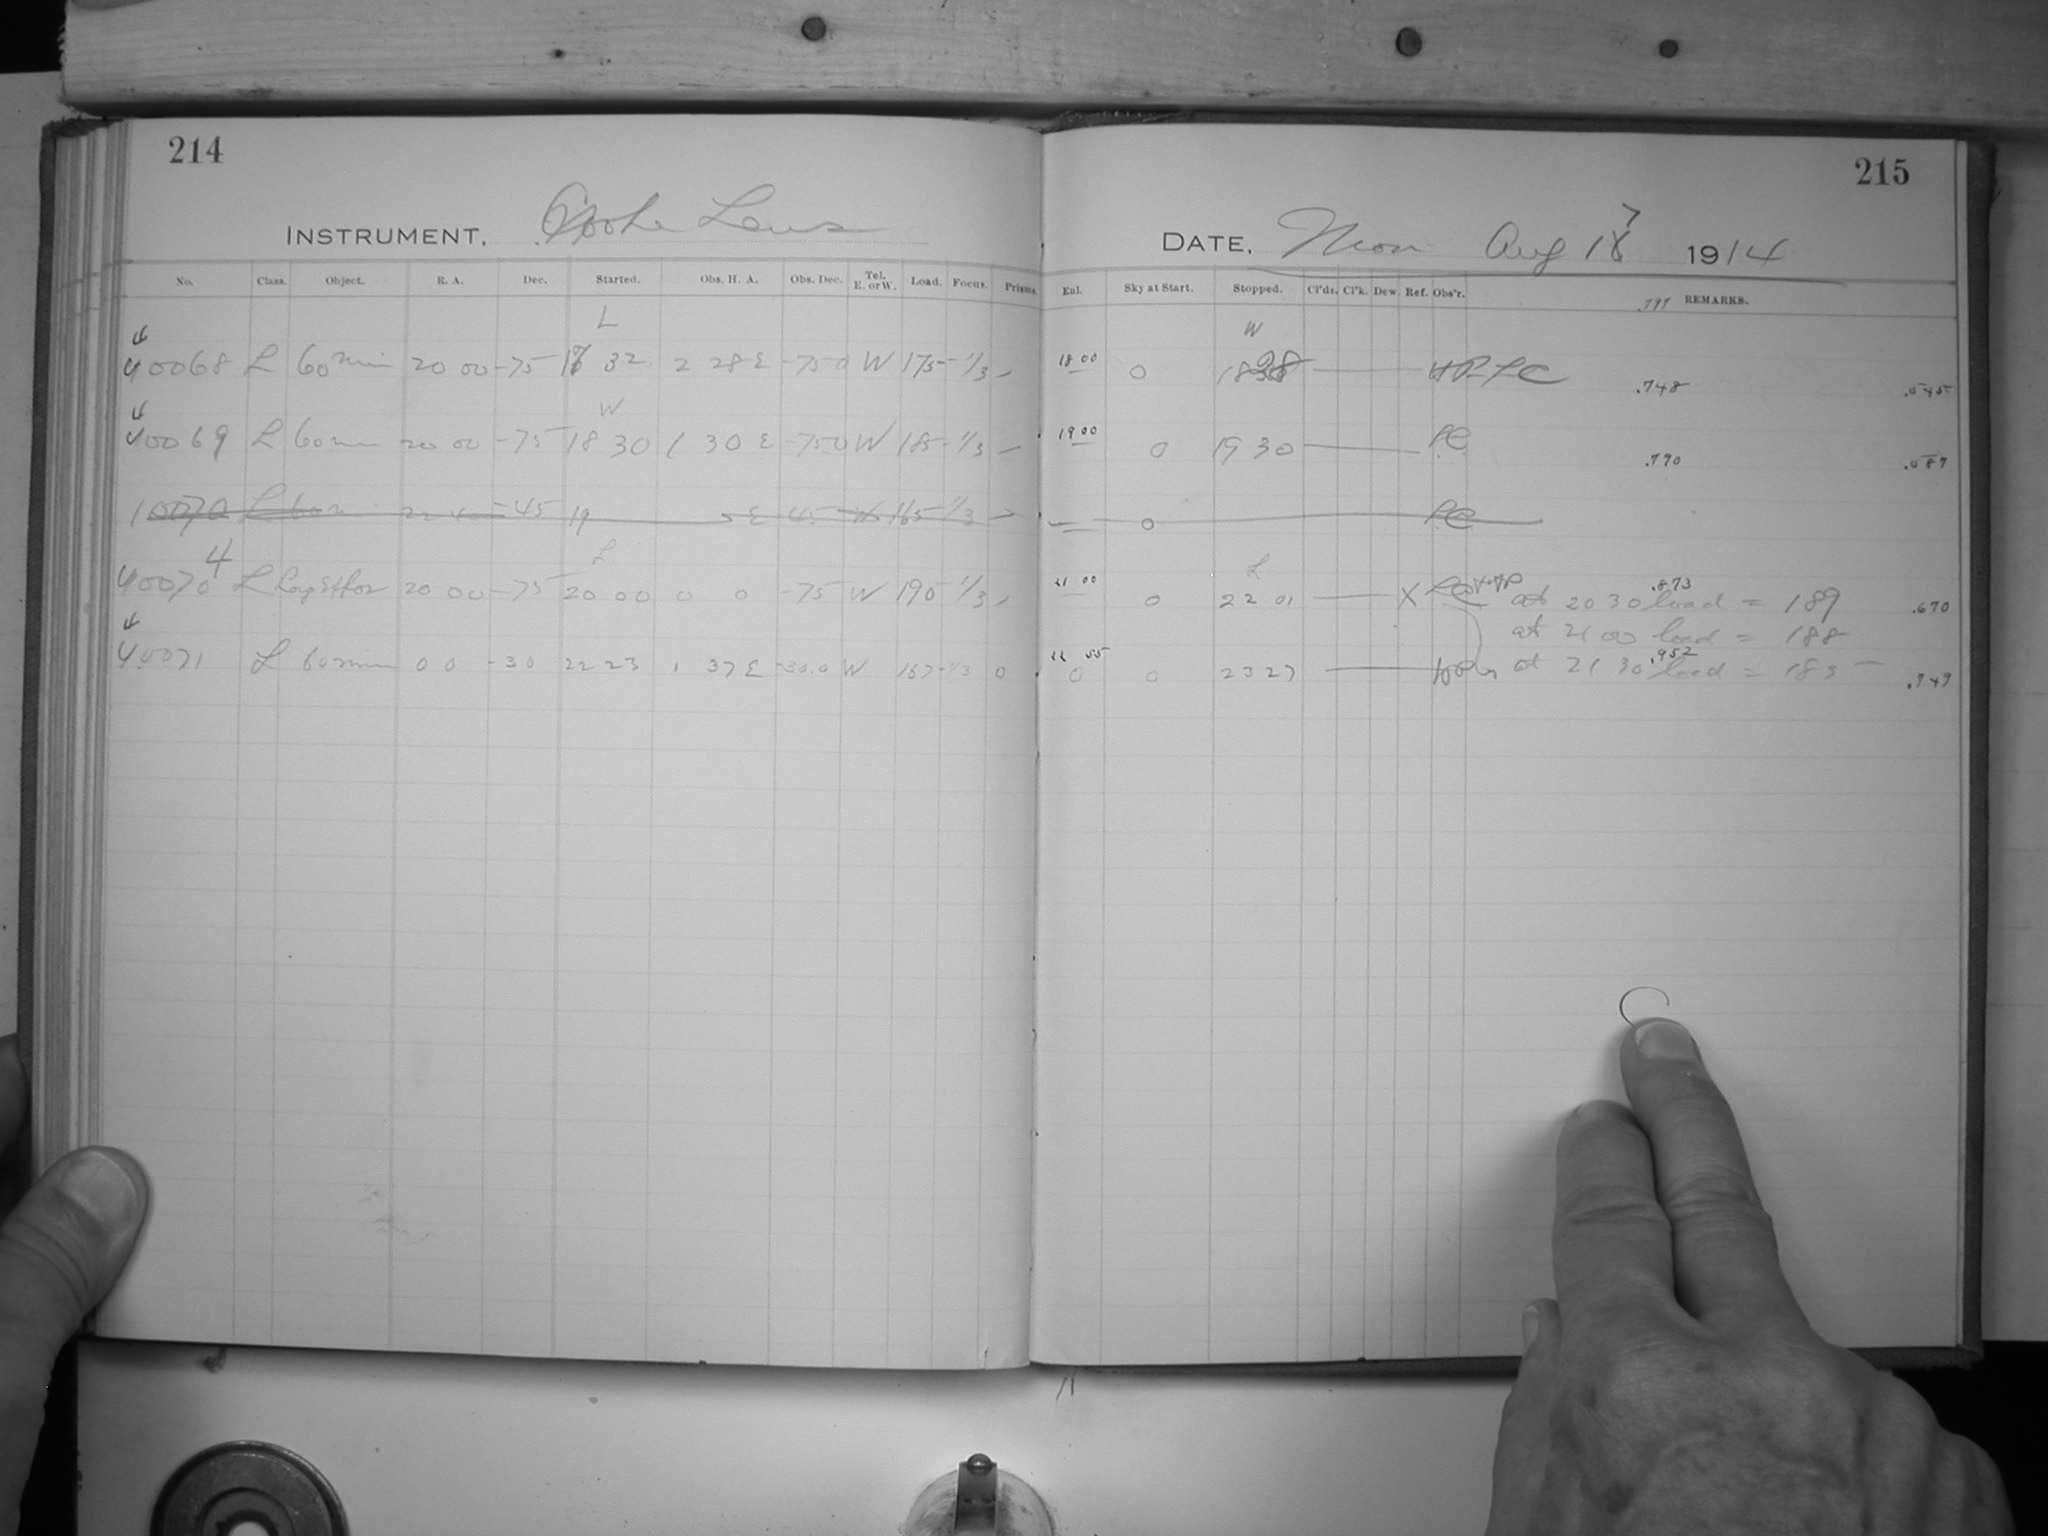 214
INSTRUMENT. Cooke Lens
No. Class. Object. R. A. Dec. Started. Obs. H. A. Obs. Dec. Tel. E. or W. Load. Focus. Prisms.
L
40068 L 60 min 20 00 -75 17 32 2 28 E -75 0 W 175 -1/3 -
W
40069 L 60 min 20 00 -75 18 30 1 30 E -75 0 W 185 -1/3 -
10070 L 60 m 22 40 -45 19 E 45 W 165 -1/3 -
4 L
40070 L 20 00 -75 20 00 0 0 -75 W 190 -1/3 -
40071 L 60 min 0 0 -30 22 23 1 37 E -30.0 W 167 -1/3 0
215
DATE. Mon Aug 17 1914
Exl. Sky at Start. Stopped. Cl'ds. Cl'k. Dew. Ref. Obs'r. REMARKS.
W
18 00 0 .748
19 00 0 19 30 .790
0
L
21 00 0 22 01 X at 20 30 load = 189 .873 .670
at 21 00 load = 188
22 55 0 0 23 27 at 21 30 load = 185 .952 .749